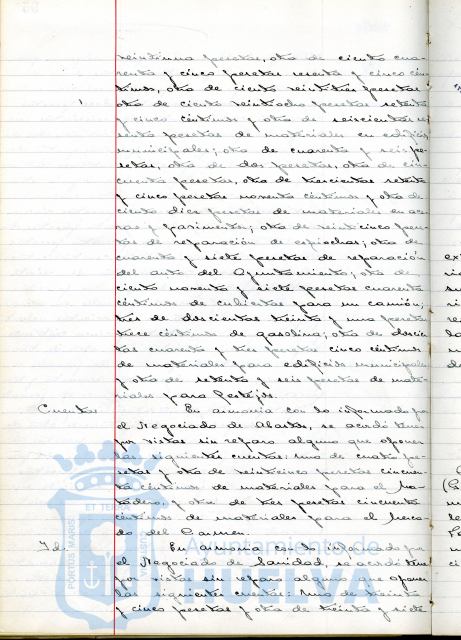 veintiuna pesetas, otra de ciento cua-
renta y cinco pesetas sesenta y cinco cén-
timos, otra de ciento veintitres pesetas
otra de ciento veintiocho pesetas setenta
y cinco céntimos y otra de seiscientas
pesetas de materiales en edificios
municipales; otra de cuarenta y seis pe-
setas, otra de dos pesetas, otra de cin-
cuenta pesetas, otra de trescientas setenta
y cinco pesetas noventa céntimos y otra de
ciento diez pesetas de materiales en ace-
ras y pavimentos; otra de veinticinco pese-
tas de reparación de espiochas; otra de
cuarenta y siete pesetas de reparación
del auto del Ayuntamiento; otra de
ciento noventa y siete pesetas cuarenta
céntimos de cubiertas para un camión;
tres de doscientas treinta y una pesetas
trece céntimos de gasolina; otra de doscien-
tas cuarenta y tres pesetas cinco céntimos
de materiales para edificios municipales
y otra de setenta y seis pesetas de mate-
riales para festejos.
Cuentas En armonia con lo informado por
el Negociado de Abastos, se acordó tener
por vistas sin reparo alguno que oponer
las siguientes cuentas: una de cuatro pe-
setas y otra de veinticinco pesetas cincuen-
ta céntimos de materiales para el Ma-
tadero, y otra de tres pesetas cincuenta
céntimos de materiales para el Merca-
do del Carmen.
Id. En armonia con lo informado por
el Negociado de Sanidad, se acordó tener
por vistas sin reparo alguno que oponer
las siguientes cuentas: una de treinta
y cinco pesetas y otra de treinta y siete
PORTUS MARIS ET TERRÆ CUSTODIA
Ayuntamiento de
HUELVA